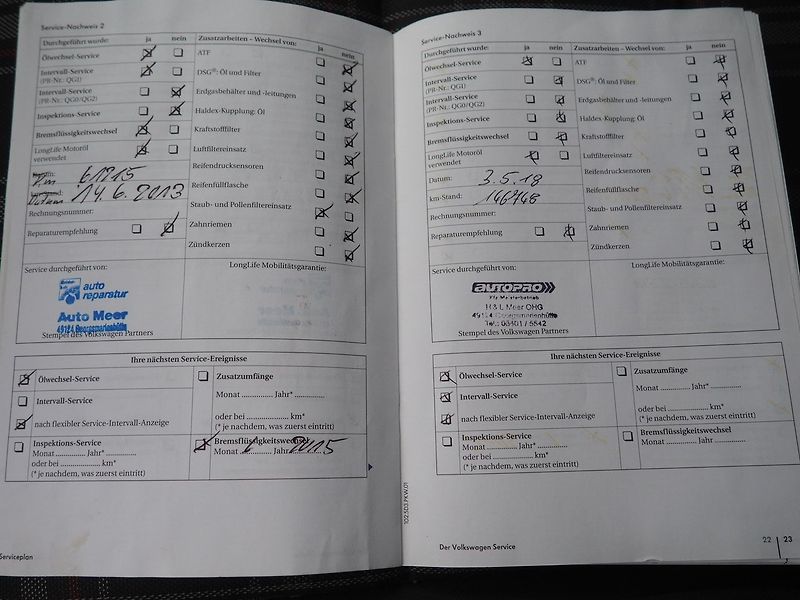 Service-Nachweis 2
Durchgeführt wurde: ja nein
Ölwechsel-Service
Intervall-Service
(PR-Nr.: QG1)
Intervall-Service
(PR-Nr.: QG0/QG2)
Inspektions-Service
Bremsflüssigkeitswechsel
LongLife Motoröl
verwendet
Km 61815
Datum 14.6.2013
Rechnungsnummer:
Reparaturempfehlung
Zusatzarbeiten – Wechsel von: ja nein
ATF
DSG®: Öl und Filter
Erdgasbehälter und -leitungen
Haldex-Kupplung: Öl
Kraftstofffilter
Luftfiltereinsatz
Reifendrucksensoren
Reifenfüllflasche
Staub- und Pollenfiltereinsatz
Zahnriemen
Zündkerzen
Service durchgeführt von:
auto
reparatur
Auto Meer
49124 Georgsmarienhütte
Stempel des Volkswagen Partners
LongLife Mobilitätsgarantie:
Ihre nächsten Service-Ereignisse
Ölwechsel-Service
Intervall-Service
nach flexibler Service-Intervall-Anzeige
Zusatzumfänge
Monat .............. Jahr* ..............
oder bei .................... km*
(* je nachdem, was zuerst eintritt)
Inspektions-Service
Monat .............. Jahr* ..............
oder bei .................... km*
(* je nachdem, was zuerst eintritt)
Bremsflüssigkeitswechsel
Monat 6 Jahr 2015
Serviceplan
Service-Nachweis 3
Durchgeführt wurde: ja nein
Ölwechsel-Service
Intervall-Service
(PR-Nr.: QG1)
Intervall-Service
(PR-Nr.: QG0/QG2)
Inspektions-Service
Bremsflüssigkeitswechsel
LongLife Motoröl
verwendet
Datum: 3.5.18
km-Stand: 146748
Rechnungsnummer:
Reparaturempfehlung
Zusatzarbeiten – Wechsel von: ja nein
ATF
DSG®: Öl und Filter
Erdgasbehälter und -leitungen
Haldex-Kupplung: Öl
Kraftstofffilter
Luftfiltereinsatz
Reifendrucksensoren
Reifenfüllflasche
Staub- und Pollenfiltereinsatz
Zahnriemen
Zündkerzen
Service durchgeführt von:
AUTOPRO
Kfz-Meisterbetrieb
H & L Meer OHG
49124 Georgsmarienhütte
Tel.: 05401 / 5542
Stempel des Volkswagen Partners
LongLife Mobilitätsgarantie:
Ihre nächsten Service-Ereignisse
Ölwechsel-Service
Intervall-Service
nach flexibler Service-Intervall-Anzeige
Zusatzumfänge
Monat .............. Jahr* ..............
oder bei .................... km*
(* je nachdem, was zuerst eintritt)
Inspektions-Service
Monat .............. Jahr* ..............
oder bei .................... km*
(* je nachdem, was zuerst eintritt)
Bremsflüssigkeitswechsel
Monat .............. Jahr ..............
Der Volkswagen Service
22 23